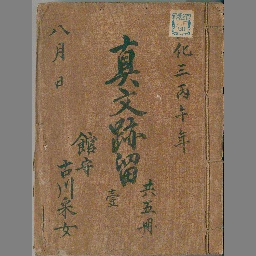 化三丙午年
真文跡留
壹
共五冊
八月日
館守
古川采女